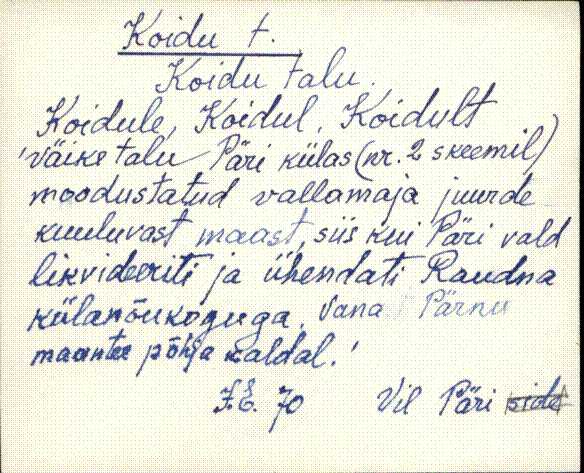 Koidu t.
Koidu talu.
Koidule, Koidul, Koidult
'väike talu Päri külas (nr. 2 skeemil)
moodustatud vallamaja juurde
kuuluvast maast, siis kui Päri vald
likvideeriti ja ühendati Raudna
külanõukoguga. Vana Pärnu
maantee põhja kaldal.'
70 Vil Päri